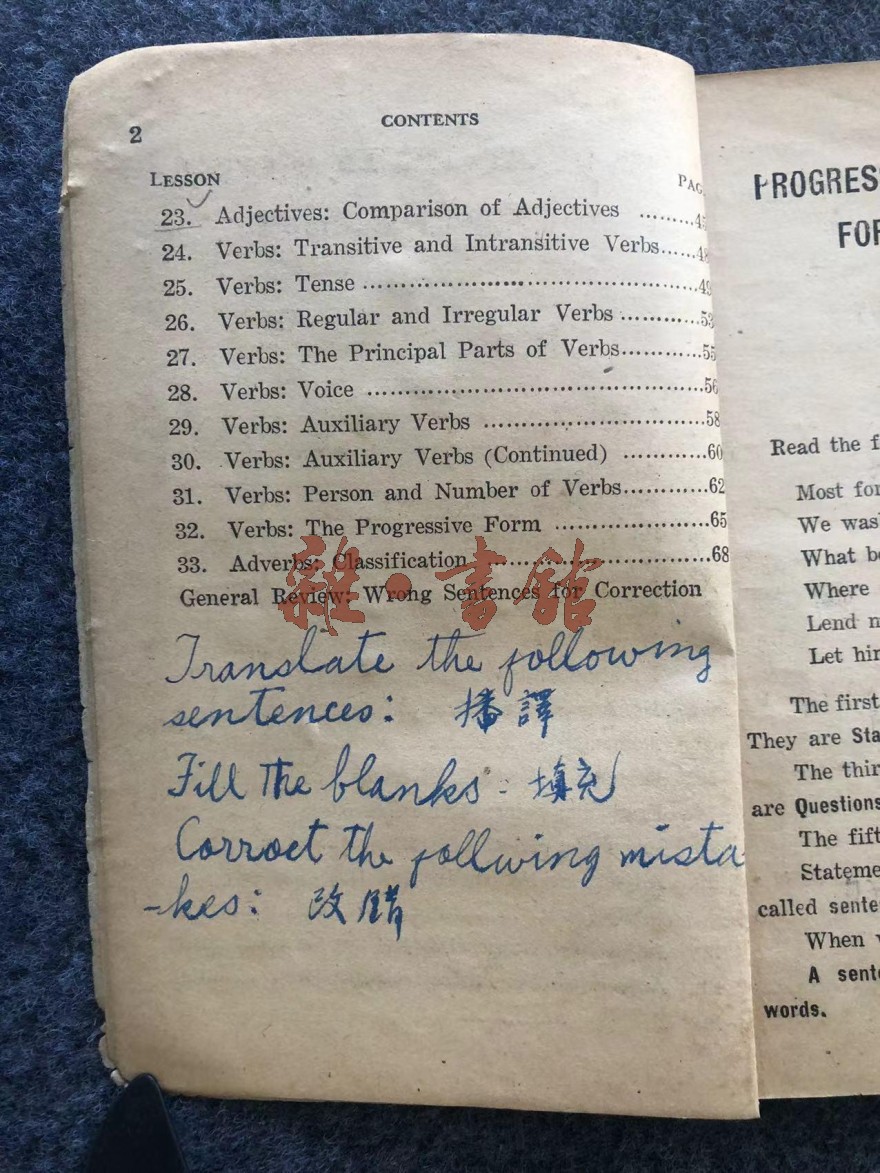 2
CONTENTS
LESSON PAG
23. Adjectives: Comparison of Adjectives .........45
24. Verbs: Transitive and Intransitive Verbs......48
25. Verbs: Tense ..........................................49
26. Verbs: Regular and Irregular Verbs ............53
27. Verbs: The Principal Parts of Verbs............55
28. Verbs: Voice ..........................................56
29. Verbs: Auxiliary Verbs ............................58
30. Verbs: Auxiliary Verbs (Continued) ............60
31. Verbs: Person and Number of Verbs............62
32. Verbs: The Progressive Form ......................65
33. Adverbs: Classification ............................68
General Review: Wrong Sentences for Correction
雜·書館
Translate the following
sentences: 播譯
Fill the blanks: 填充
Corroct the follwing mista
-kes: 改錯
PROGRES
FOR
Read the f
Most for
We was
What be
Where
Lend n
Let hin
The first
They are Sta
The thir
are Questions
The fift
Stateme
called sente
When w
A sent
words.